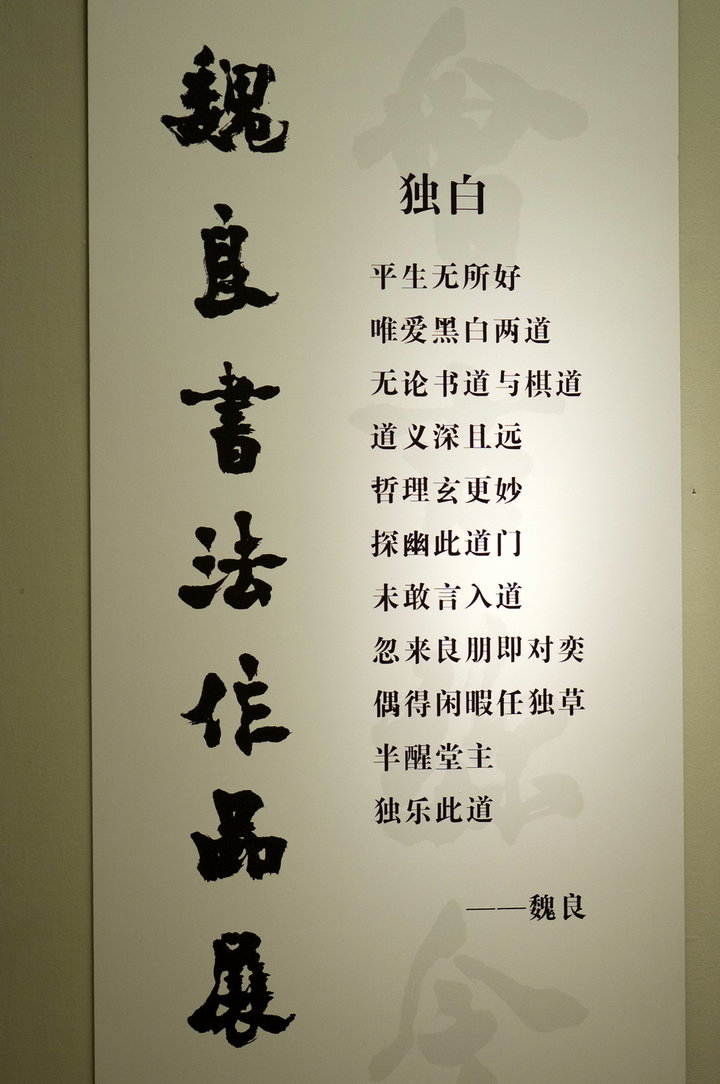 魏良書法作品展
独白
平生无所好
唯爱黑白两道
无论书道与棋道
道义深且远
哲理玄更妙
探幽此道门
未敢言入道
忽来良朋即对奕
偶得闲暇任独草
半醒堂主
独乐此道
——魏良